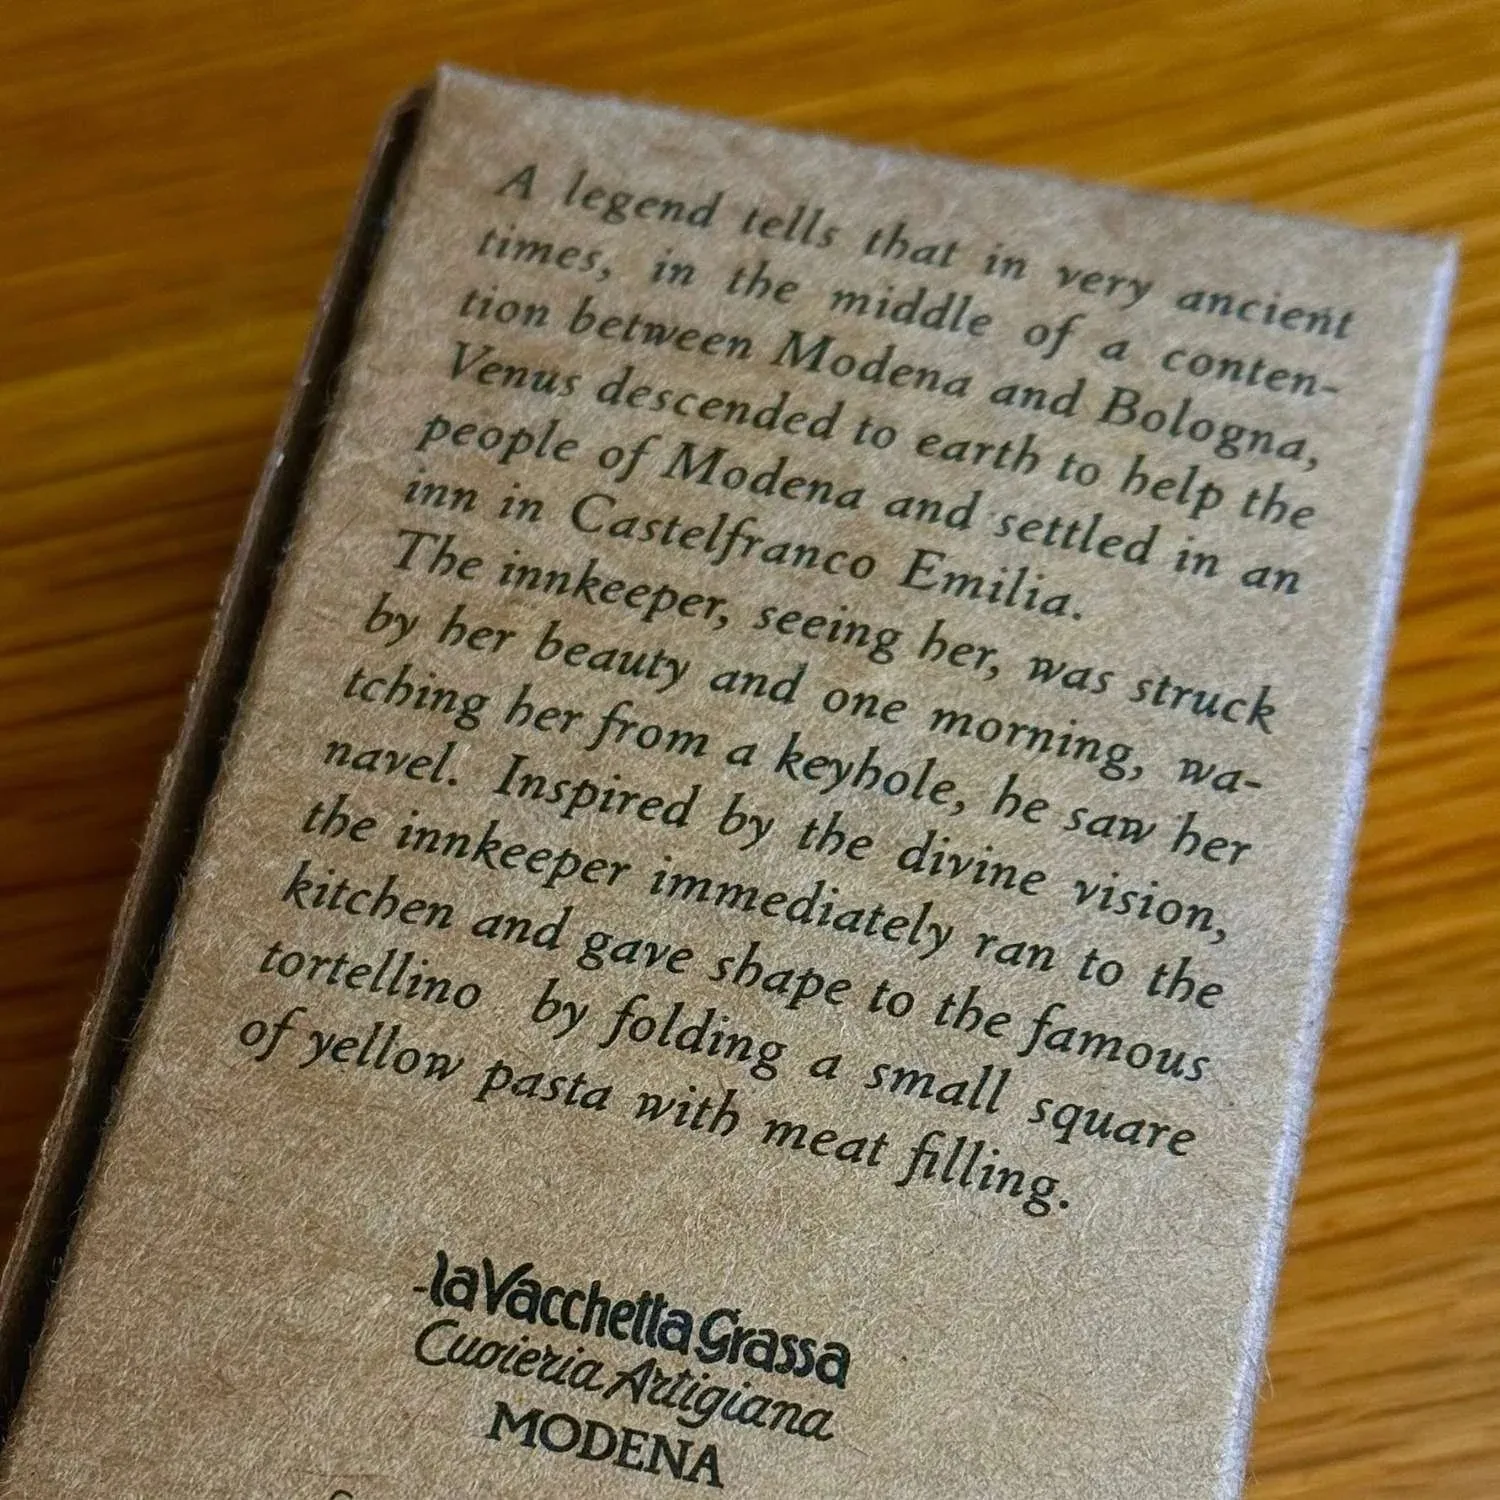 A legend tells that in very ancient
times, in the middle of a conten-
tion between Modena and Bologna,
Venus descended to earth to help the
people of Modena and settled in an
inn in Castelfranco Emilia.
The innkeeper, seeing her, was struck
by her beauty and one morning, wa-
tching her from a keyhole, he saw her
navel. Inspired by the divine vision,
the innkeeper immediately ran to the
kitchen and gave shape to the famous
tortellino by folding a small square
of yellow pasta with meat filling.
la Vacchetta Grassa
Cuoieria Artigiana
MODENA